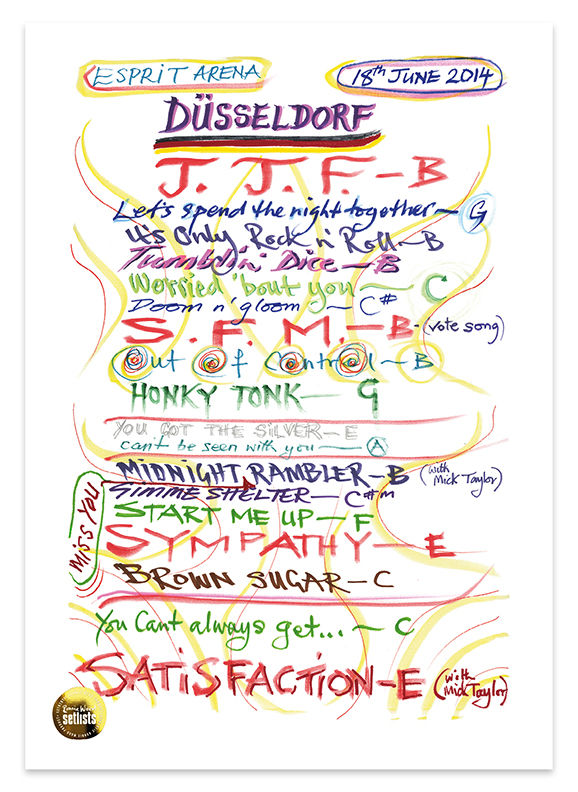 ESPRIT ARENA
18th JUNE 2014
DÜSSELDORF
J. J. F. - B
Let's spend the night together - G
It's Only Rock n' Roll - B
Tumblin' Dice - B
Worried 'bout you - C
Doom n' gloom - C#
S. F. M. - B - (vote song)
Out of Control - B
HONKY TONK - G
YOU GOT THE SILVER - E
can't be seen with you - A
MIDNIGHT RAMBLER - B (with Mick Taylor)
GIMME SHELTER - C#m
MISS YOU
START ME UP - F
SYMPATHY - E
BROWN SUGAR - C
You Cant always get... - C
SATISFACTION - E (with Mick Taylor)
Ronnie Wood
setlists